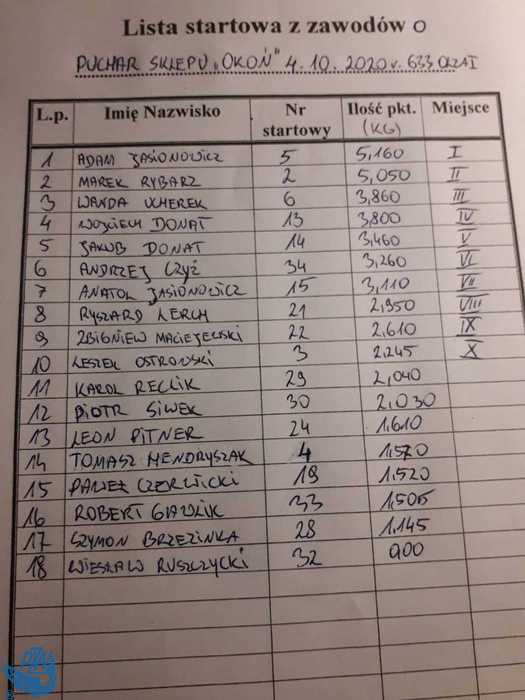 Lista startowa z zawodów o
PUCHAR SKLEPU „OKOŃ" 4.10.2020r. 633
L.p. Imię Nazwisko Nr startowy Ilość pkt. (KG) Miejsce
1 ADAM JASIONOWICZ 5 5,160 I
2 MAREK RYBARZ 2 5,050 II
3 WANDA UCHEREK 6 3,860 III
4 WOJCIECH DONAT 13 3,800 IV
5 JAKUB DONAT 14 3,460 V
6 ANDRZEJ CZYŻ 34 3,260 VI
7 ANATOL JASIONOWICZ 15 3,110 VII
8 RYSZARD LERCH 21 2,950 VIII
9 ZBIGNIEW MACIEJEWSKI 22 2,610 IX
10 LESZEK OSTROWSKI 3 2,245 X
11 KAROL RECLIK 29 2,040
12 PIOTR SIWEK 30 2,030
13 LEON PITNER 24 1,610
14 TOMASZ HENDRYSZAK 4 1,570
15 PAWEŁ CZERWICKI 19 1,520
16 ROBERT 33 1,505
17 SZYMON BRZEZINKA 28 1,145
18 WIESŁAW RUSZCZYCKI 32 0,00